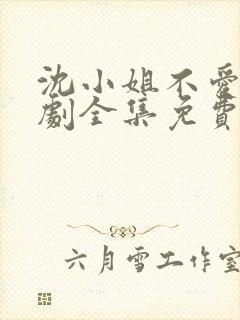 沈小姐不愛
劇全集免費
六月雪工作室